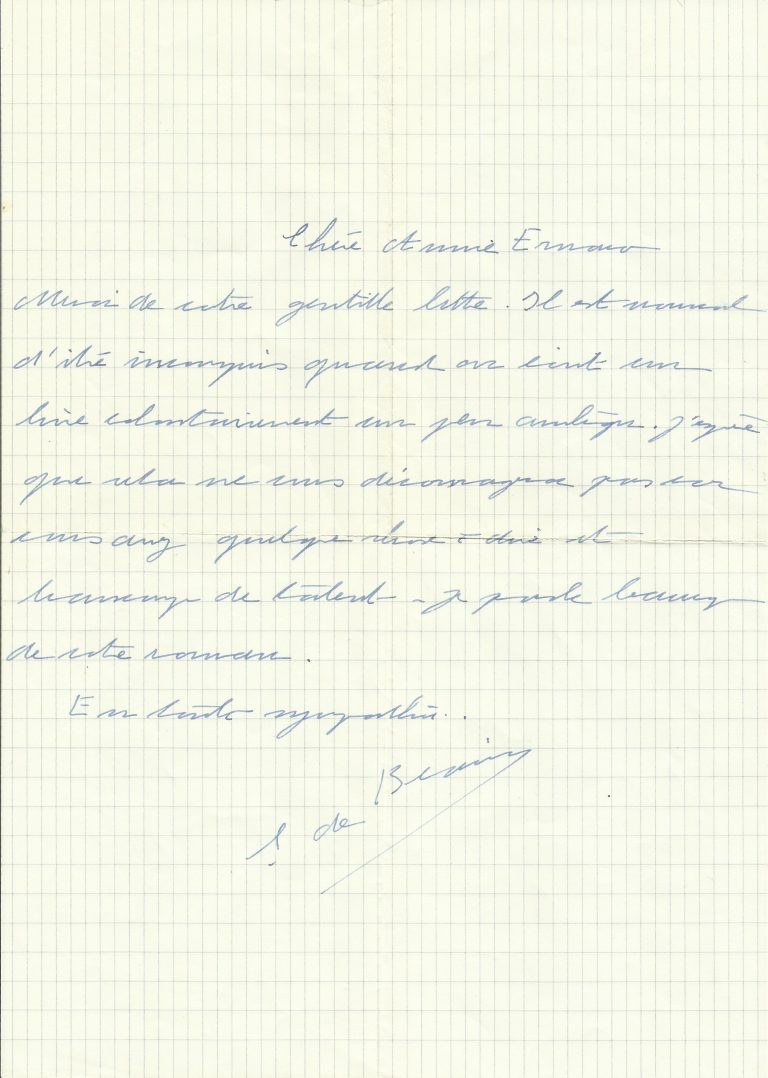 Chère Annie Ernaux
Merci de votre gentille lettre. Il est normal
d'être incompris quand on écrit un
livre volontairement un peu ambigu. J'espère
que cela ne vous découragera pas car
vous avez quelque chose à dire et
beaucoup de talent – je parle beaucoup
de votre roman.
En toute sympathie.
S. de Beauvoir